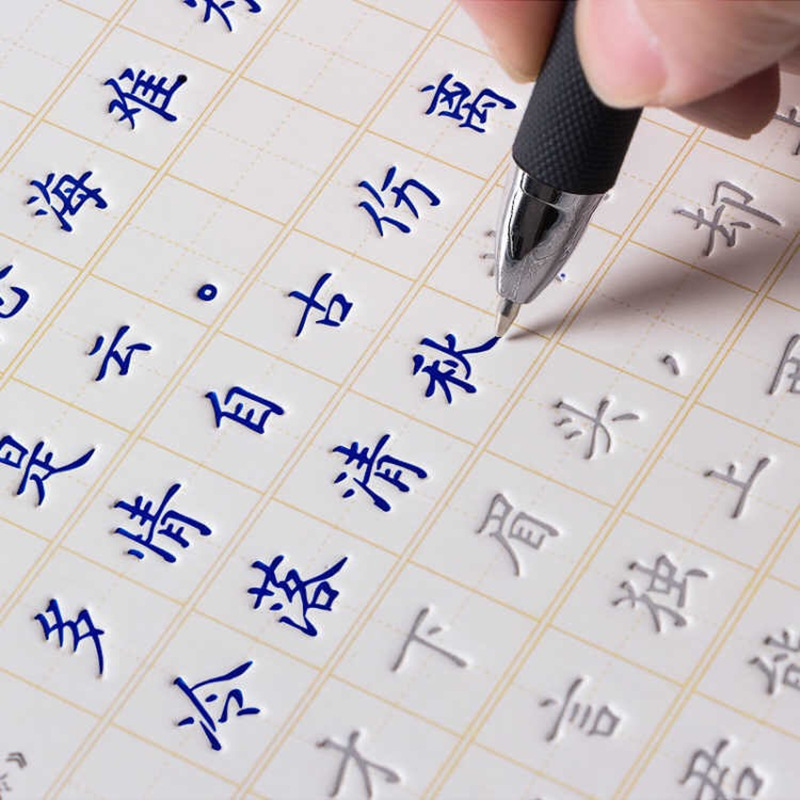 海难
是云。
多情自古份离
冷落清秋
才下眉头,却
言独上西
君能